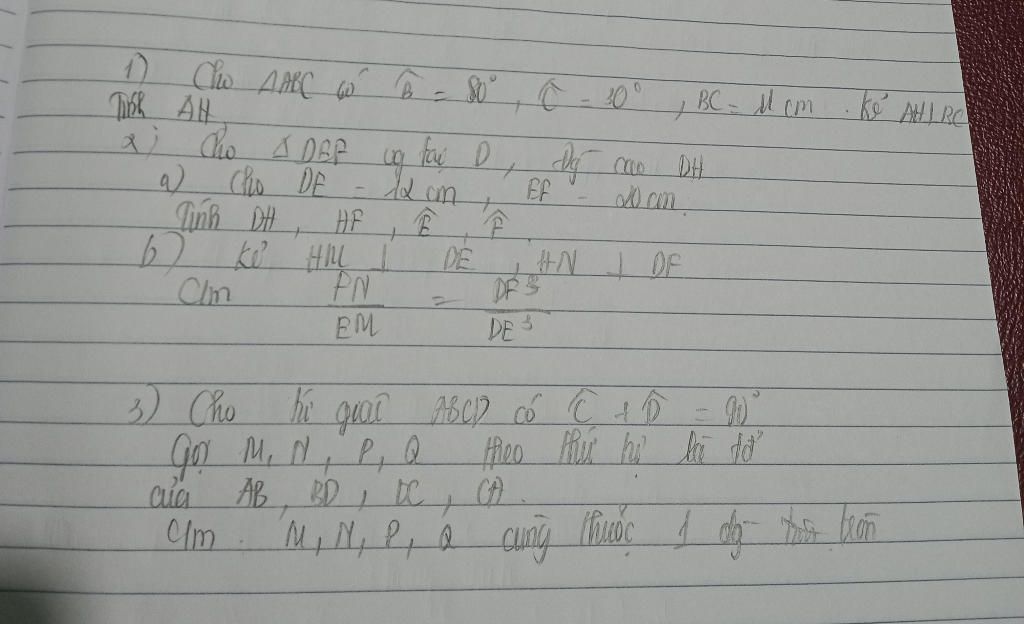 1) Cho ΔABC có B̂ = 80°, Ĉ = 30°, BC = 11 cm. kẻ AH⊥BC
Tính AH
2) Cho ΔDEF vg tại D, đg cao DH
a) Cho DE = 12 cm, EF = 20 cm.
Tính DH, HF, Ê, F̂
b) kẻ HM ⊥ DE, HN ⊥ DF
C/m FN/EM = DF³/DE³
3) Cho tứ giác ABCD có Ĉ + D̂ = 90°
Gọi M, N, P, Q theo thứ tự là tđ
của AB, BD, DC, CA.
C/m. M, N, P, Q cùng thuộc 1 đg tròn